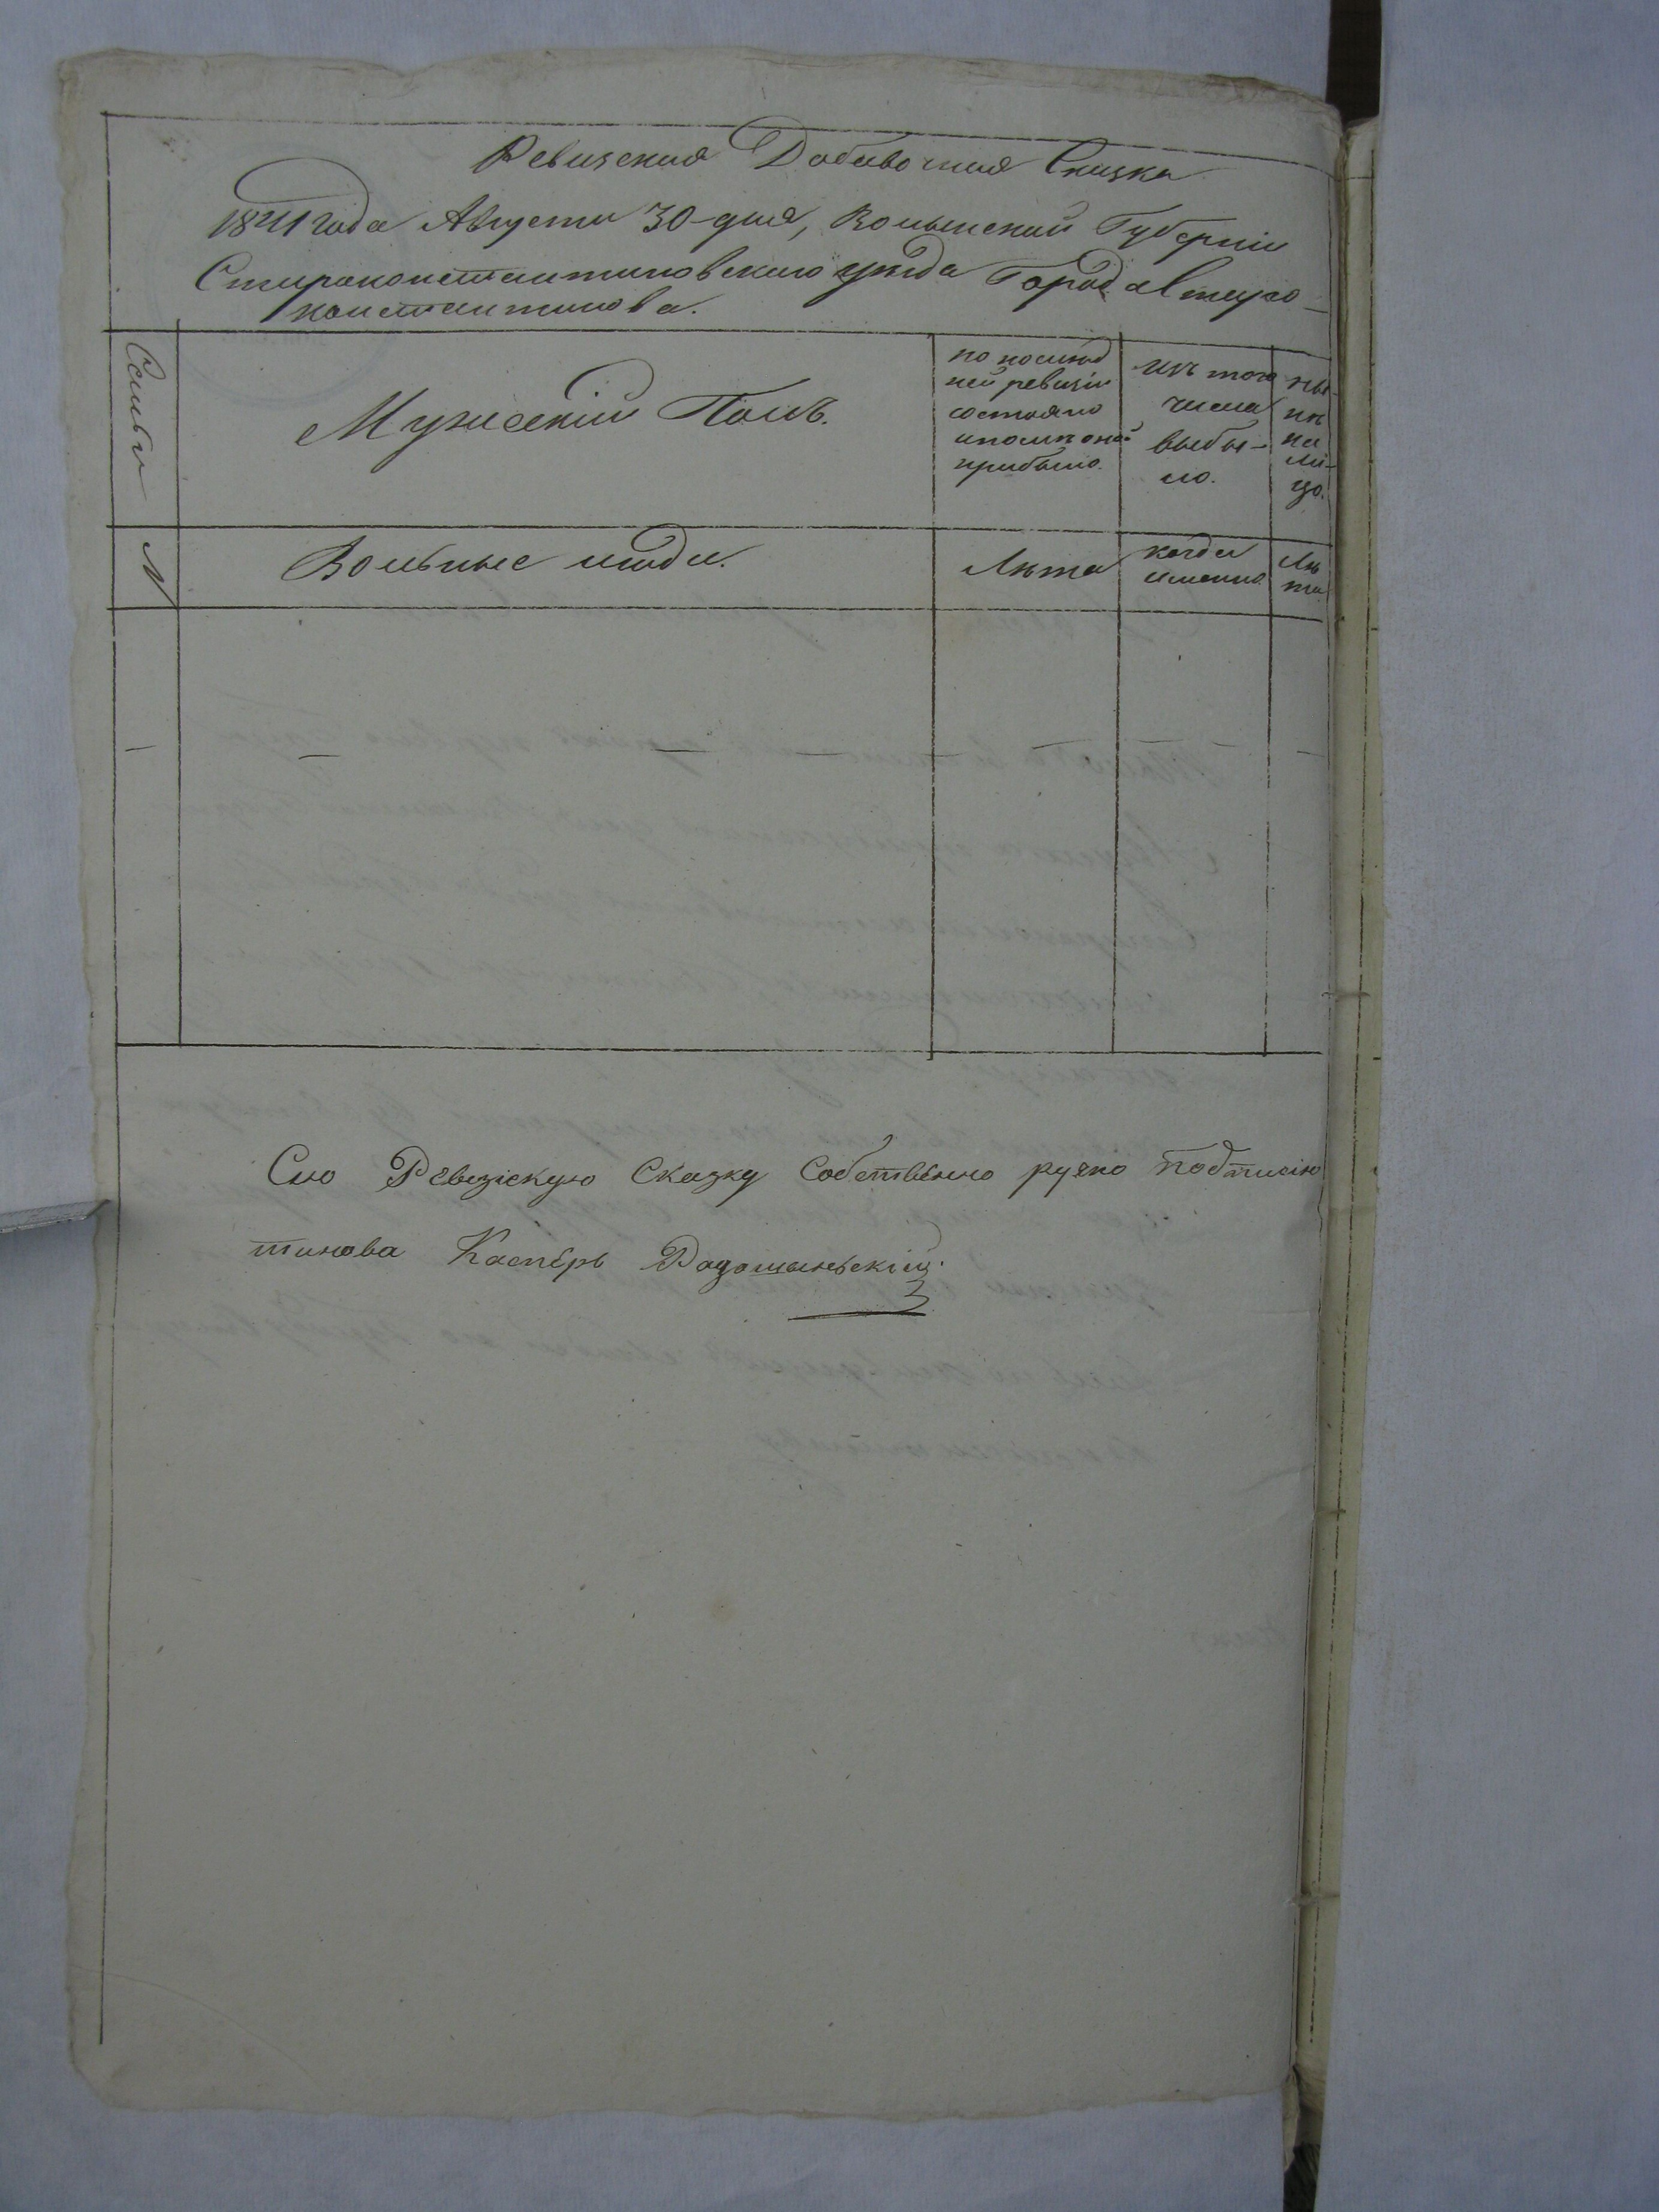 Ревизская Добавочная Сказка
1841 года Августа 30-дня, Волынской Губерніи
Староконстантиновского уѣзда Города Старо-
константинова.
Семьи
Мужескій Полъ.
по послѣд
ней ревизіи
состояло
и послѣ оной
прибыло.
изъ того
числа
выбы-
ло.
ны-
нѣ
на
ли-
цо.
№
Вольные люди.
Лѣта
когда
именно.
Лѣ
та
Сию Ревезіскую Сказку Собственно ручно подписію
тинова Касперъ Радошынскій.